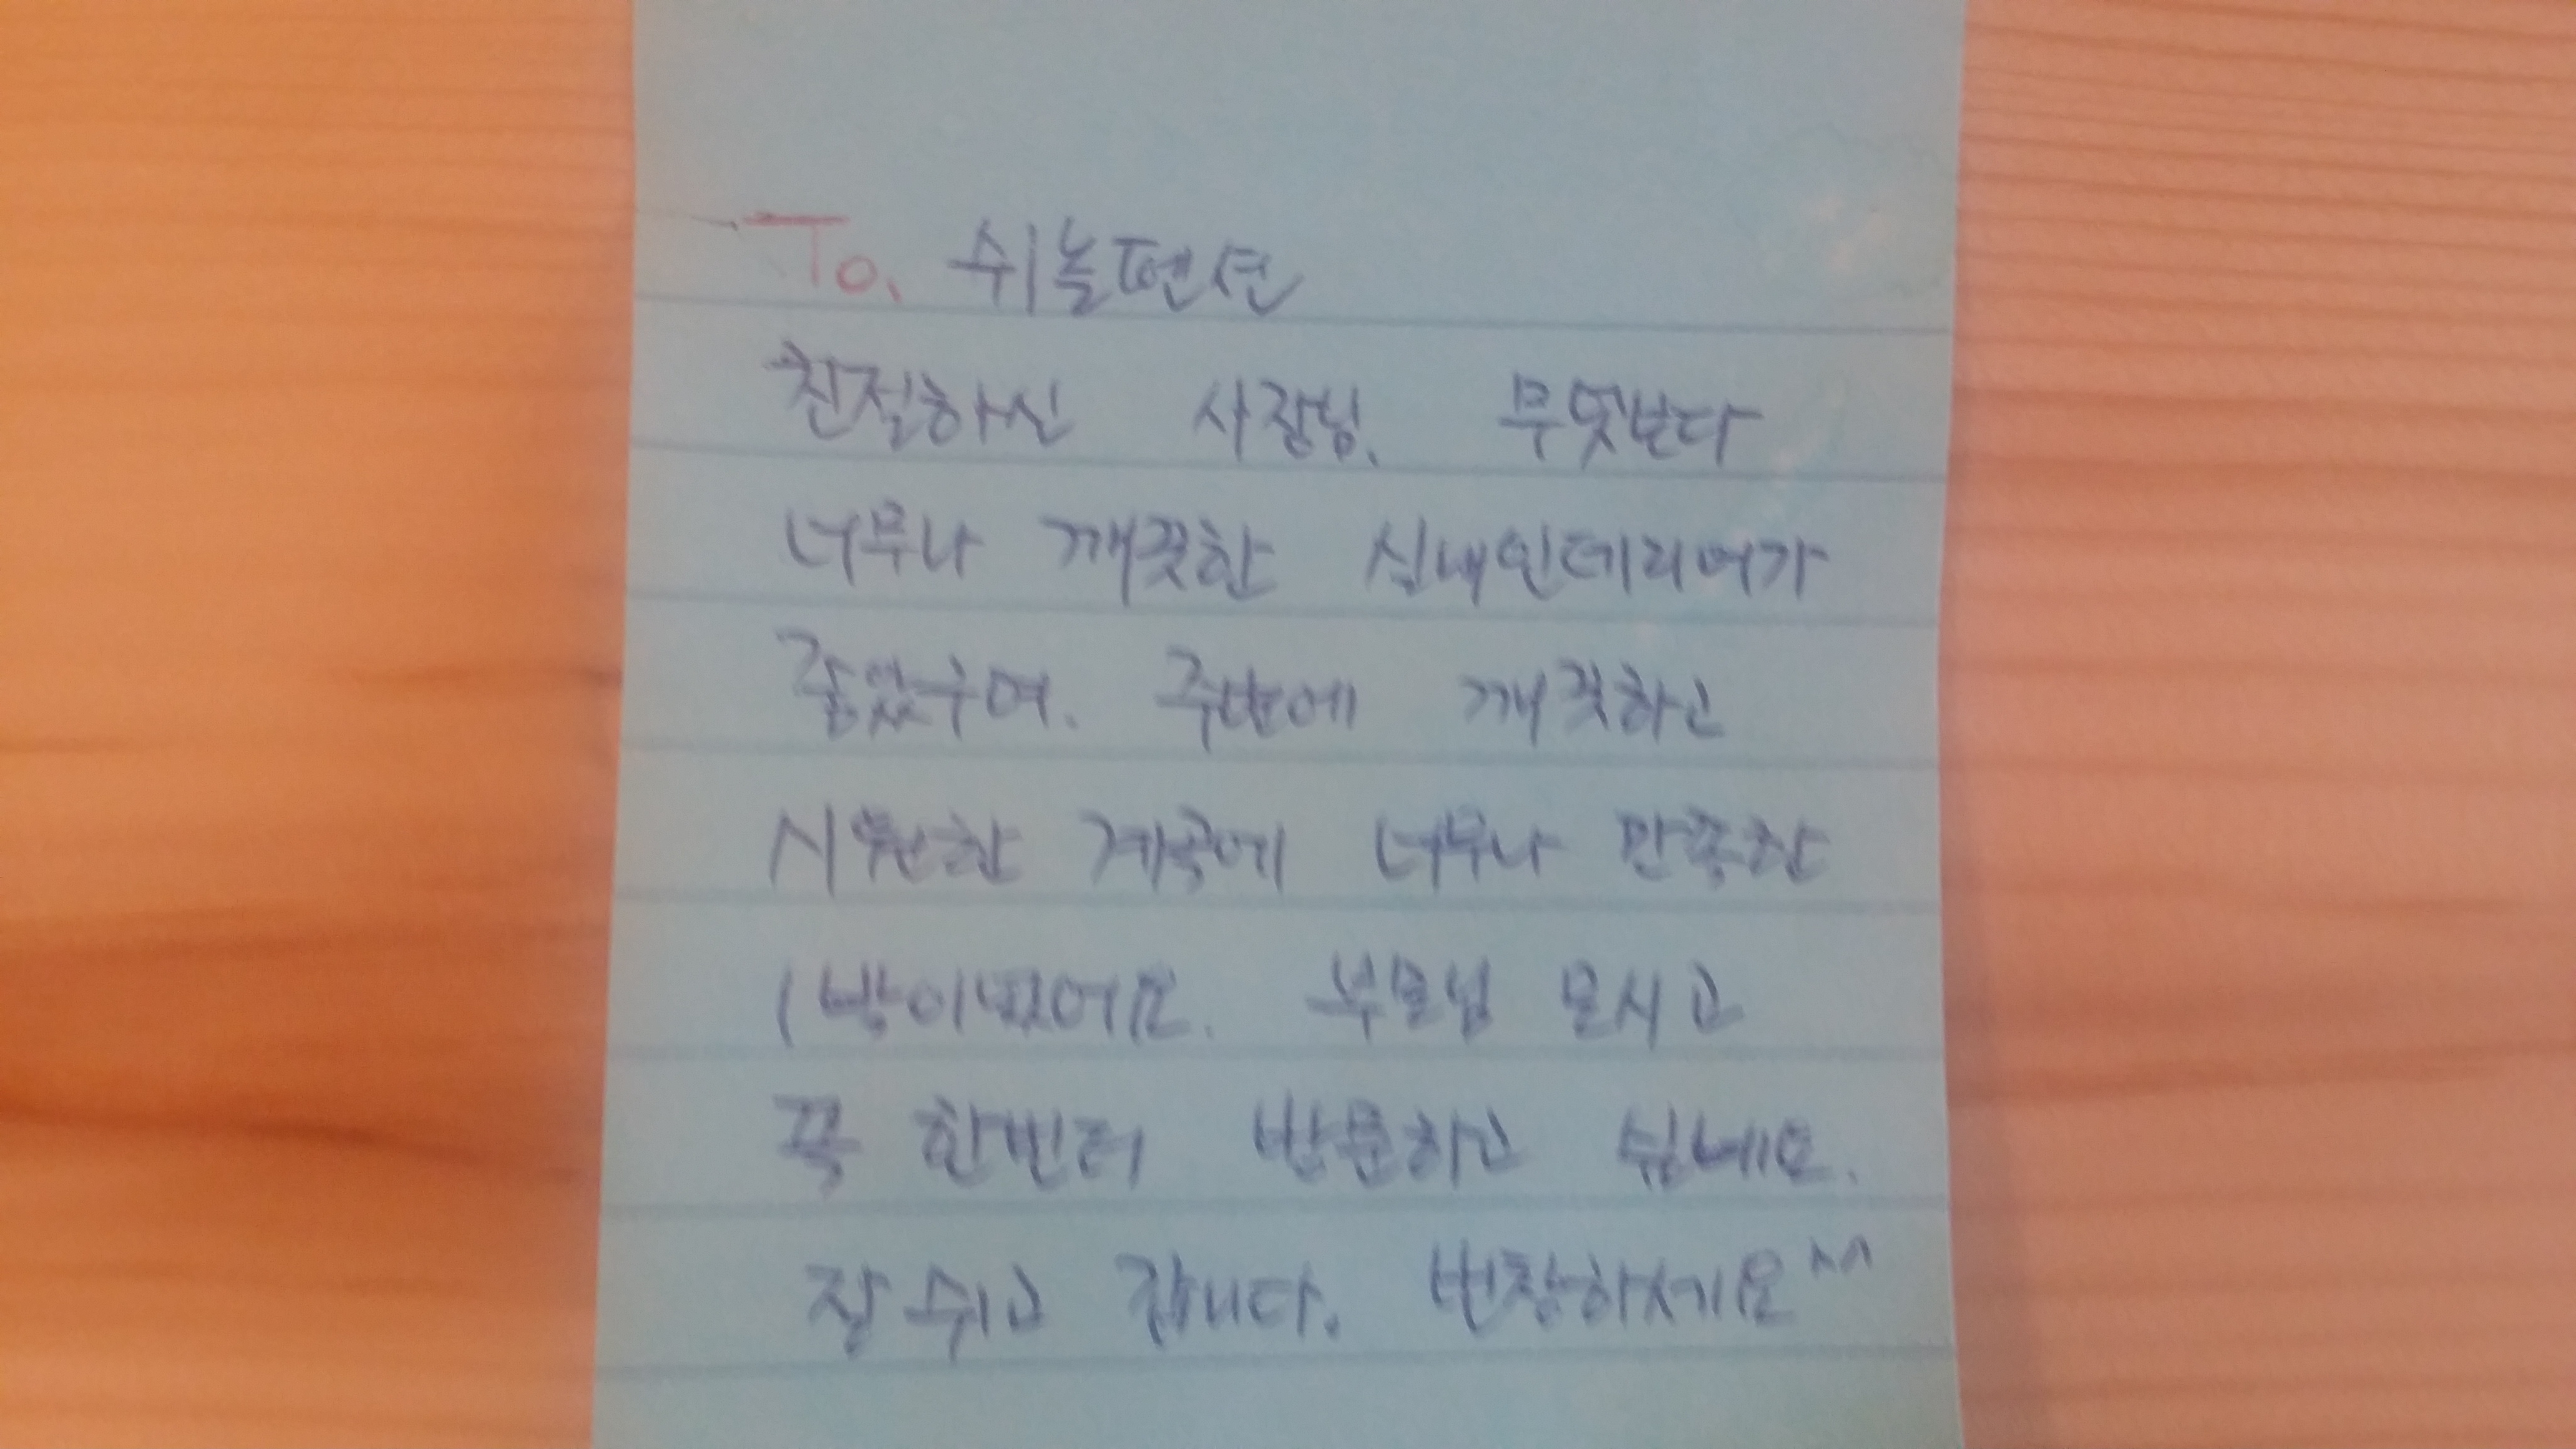 To. 쉬놀펜션
친절하신 사장님. 무엇보다
너무나 깨끗한 실내인테리어가
좋았구여. 주변에 깨끗하고
시원한 계곡에 너무나 만족한
1박이었어요. 부모님 모시고
꼭 한번더 방문하고 싶네요.
잘 쉬고 갑니다. 번창하세요^^